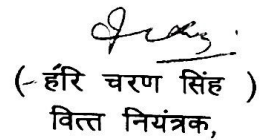 (- हरि चरण सिंह )
वित्त नियंत्रक,